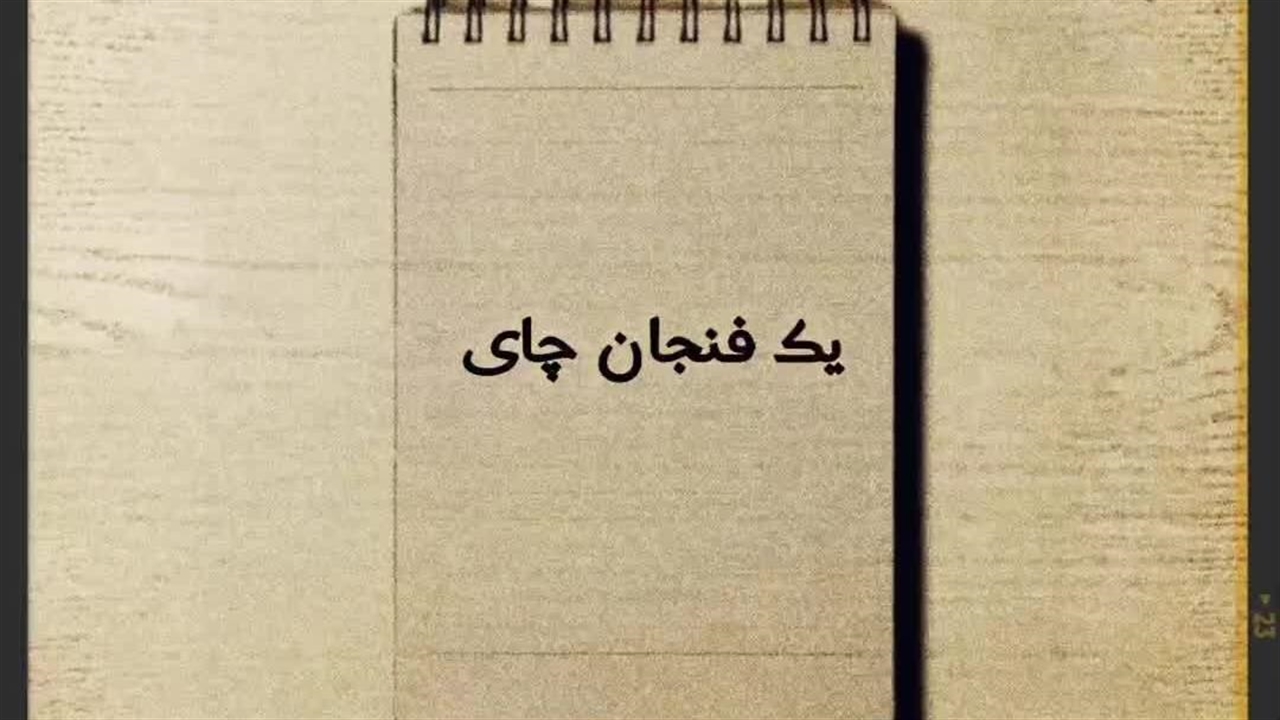 یک فنجان چای
23